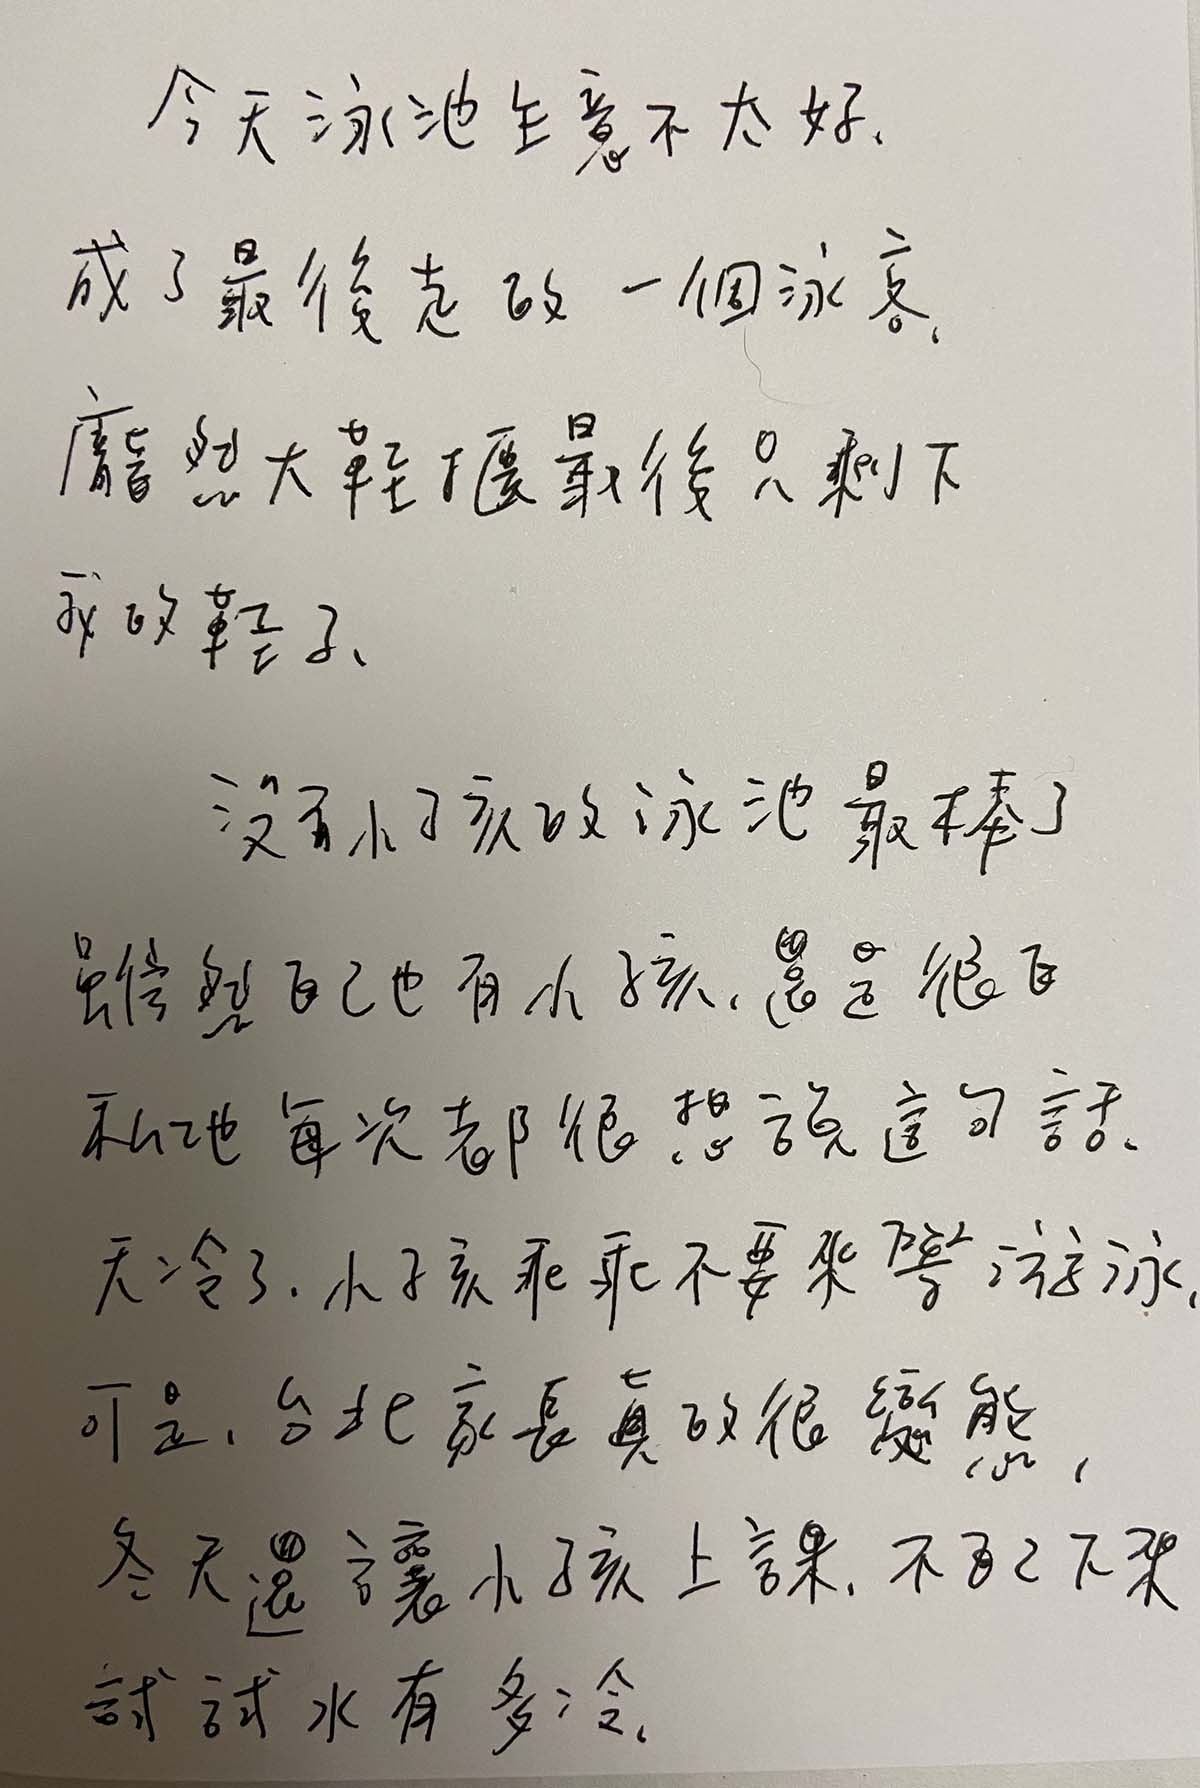 今天泳池生意不太好、
成了最後走的一個泳客、
龐然大鞋櫃最後只剩下
我的鞋子、
沒有小孩的泳池最棒了
雖然自己也有小孩、還是很自
私地每次都很想說這句話、
天冷了、小孩乖乖不要來學游泳、
可是、台北家長真的很變態、
冬天還讓小孩上課、不自己下來
試試水有多冷、